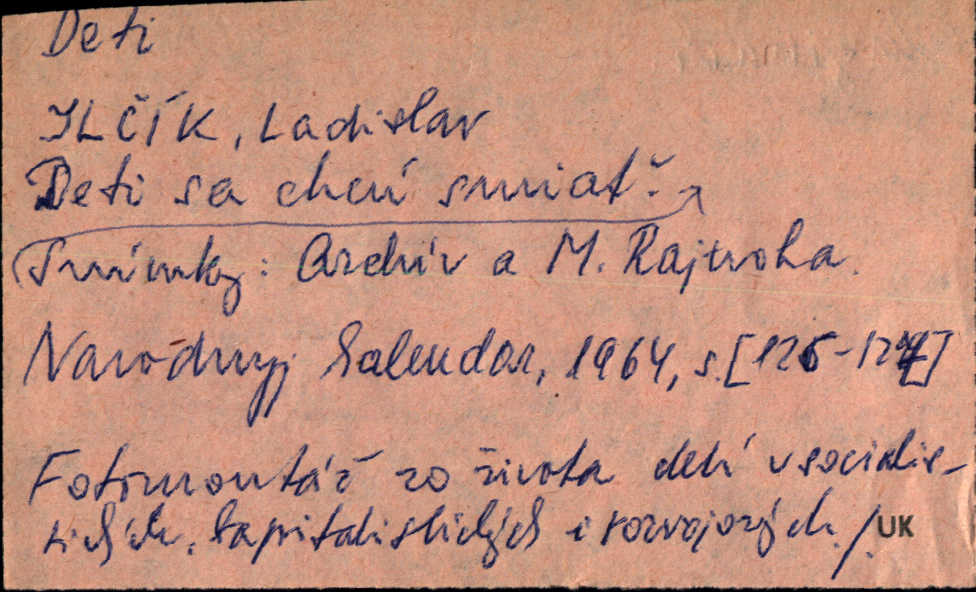 Deti
ILČÍK, Ladislav
Deti sa chcú smiať.
Snímky: Archív a M. Rajtroha.
Národný kalendár, 1964, s. [126-127]
Fotomontáž zo života detí v socialis-
tických, kapitalistických i rozvojových /.
UK